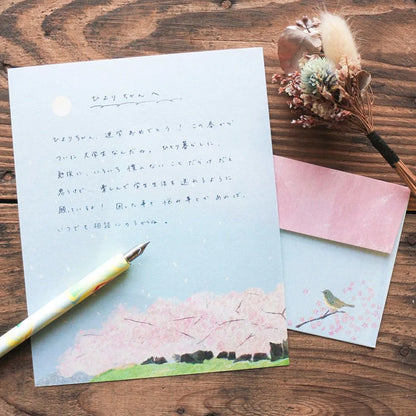 ひよりちゃんへ
ひよりちゃん、進学おめでとう！この春から
ついに大学生なんだね。ひとり暮らしに、
勉強に、いろいろ慣れないことだらけだと
思うけど、楽しんで学生生活を送れるように
願っているよ！困った事や悩み事とかあれば、
いつでも相談にのるからね。